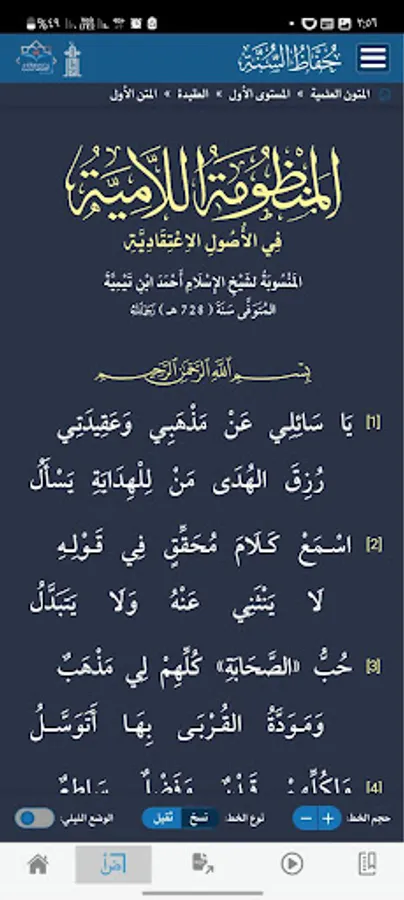 ٪٤٩ ٢:٥٦
حُفَّاظُ السُّنَّة
المتون العلمية » المستوى الأول » العقيدة » المتن الأول
المَنْظُومَةُ اللَّامِيَّةُ
فِي الأُصُولِ الِاعْتِقَادِيَّةِ
المَنْسُوبَةُ لِشَيْخِ الإِسْلَامِ أَحْمَدَ ابْنِ تَيْمِيَّةَ
المُتَوَفَّى سَنَةَ (728 هـ) رَحِمَهُ اللَّهُ
بِسْمِ اللَّهِ الرَّحْمَنِ الرَّحِيمِ
[1] يَا سَائِلِي عَنْ مَذْهَبِي وَعَقِيدَتِي
رُزِقَ الهُدَى مَنْ لِلْهِدَايَةِ يَسْأَلُ
[2] اسْمَعْ كَلَامَ مُحَقِّقٍ فِي قَوْلِهِ
لَا يَنْثَنِي عَنْهُ وَلَا يَتَبَدَّلُ
[3] حُبُّ «الصَّحَابَةِ» كُلِّهِمْ لِي مَذْهَبٌ
وَمَوَدَّةُ القُرْبَى بِهَا أَتَوَسَّلُ
[4] وَلِكُلِّهِمْ قَدْرٌ وَفَضْلٌ سَاطِعٌ
حجم الخط: + − نوع الخط: نسخ ثقيل الوضع الليلي: